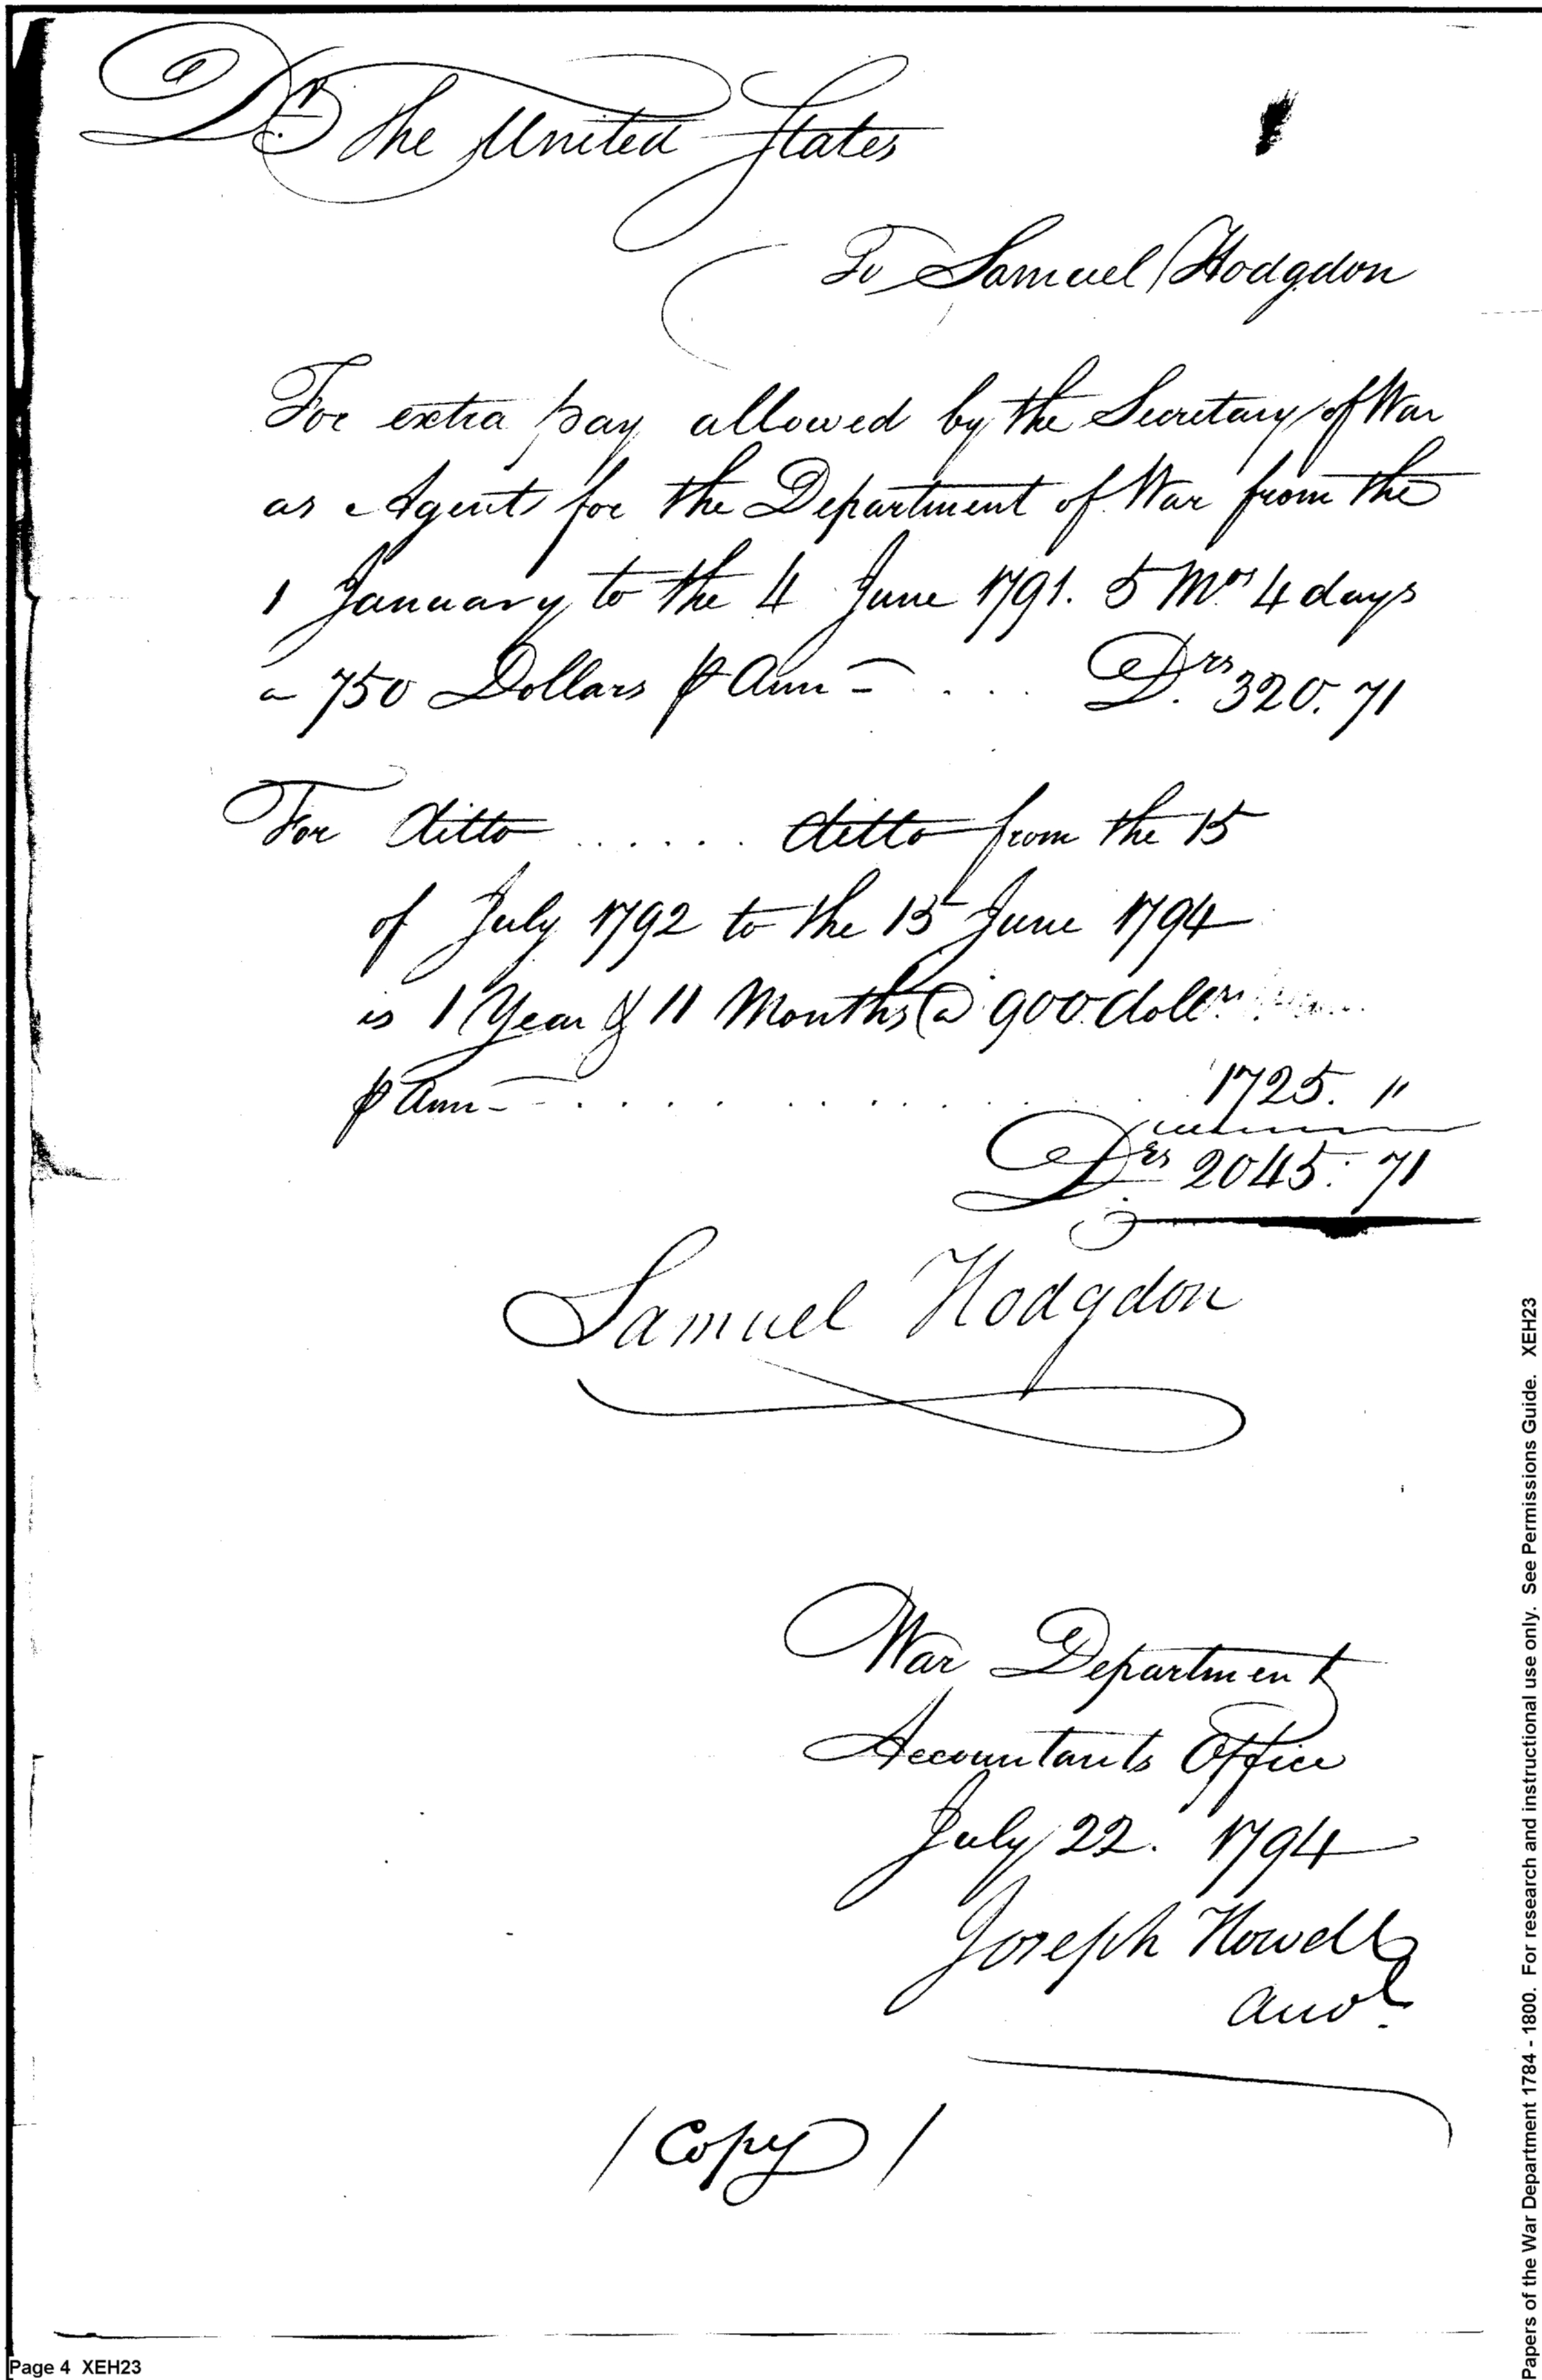 Dr The United States
To Samuel Hodgdon
For extra pay allowed by the Secretary of War
as Agent for the Department of War from the
1 January to the 4 June 1791. 5 Mos 4 days
a 750 Dollars ⅌ Ann - .... Drs 320. 71
For ditto ..... ditto from the 15
of July 1792 to the 15 June 1794
is 1 Year & 11 Months @ 900 dollrs
⅌ Ann - ............. 1725. "
Drs 2045. 71
Samuel Hodgdon
War Department
Accountants Office
July 22. 1794
Joseph Howell
/ Copy /
Page 4 XEH23
Papers of the War Department 1784 - 1800. For research and instructional use only. See Permissions Guide. XEH23